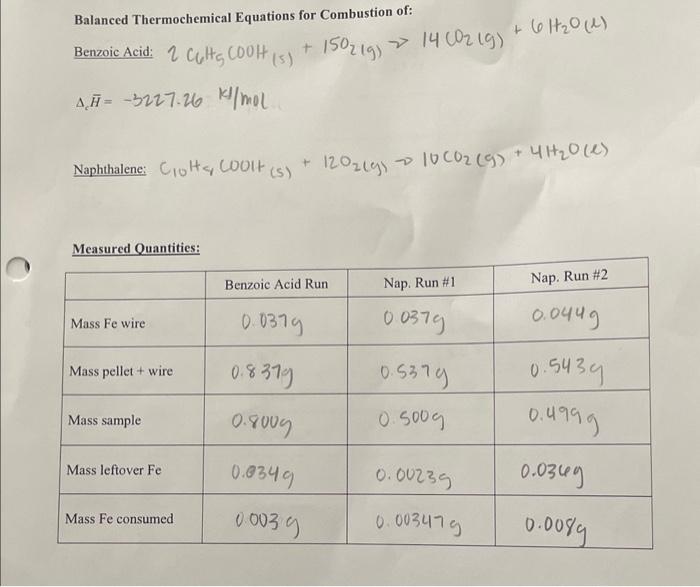 Balanced Thermochemical Equations for Combustion of:
Benzoic Acid: 2 C6H5COOH(s) + 15O2(g) → 14CO2(g) + 6H2O(l)
ΔcH̅ = -3227.26 kJ/mol
Naphthalene: C10H9COOH(s) + 12O2(g) → 10CO2(g) + 4H2O(l)
Measured Quantities:
Benzoic Acid Run Nap. Run #1 Nap. Run #2
Mass Fe wire 0.037g 0.037g 0.044g
Mass pellet + wire 0.837g 0.537g 0.543g
Mass sample 0.800g 0.500g 0.499g
Mass leftover Fe 0.034g 0.0023g 0.036g
Mass Fe consumed 0.003g 0.00347g 0.008g